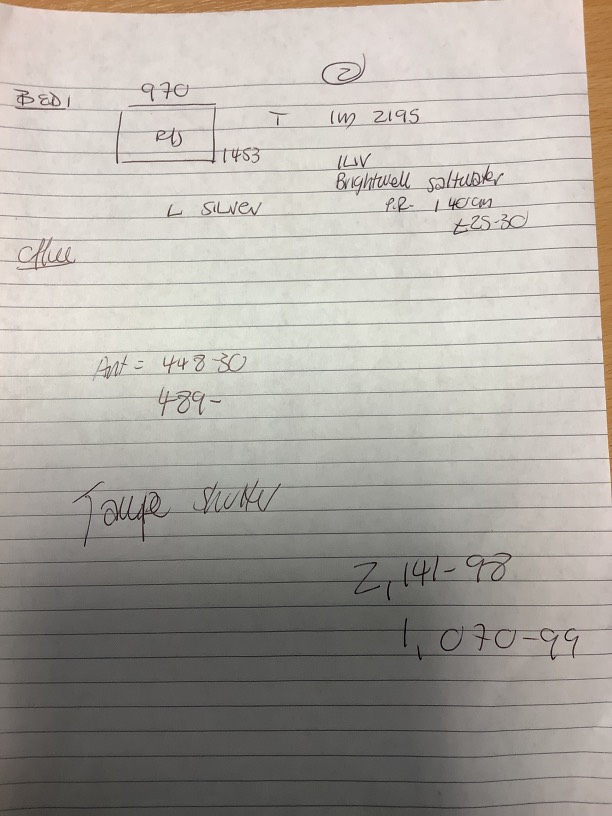 2
BED1
970
T 1m 2195
1453
ILIV
Brightwell saltwater
P.R. 140cm
£25-30
L SILVER
Office
Ant = 448-30
489-
Taupe shutter
2,141-98
1,070-99